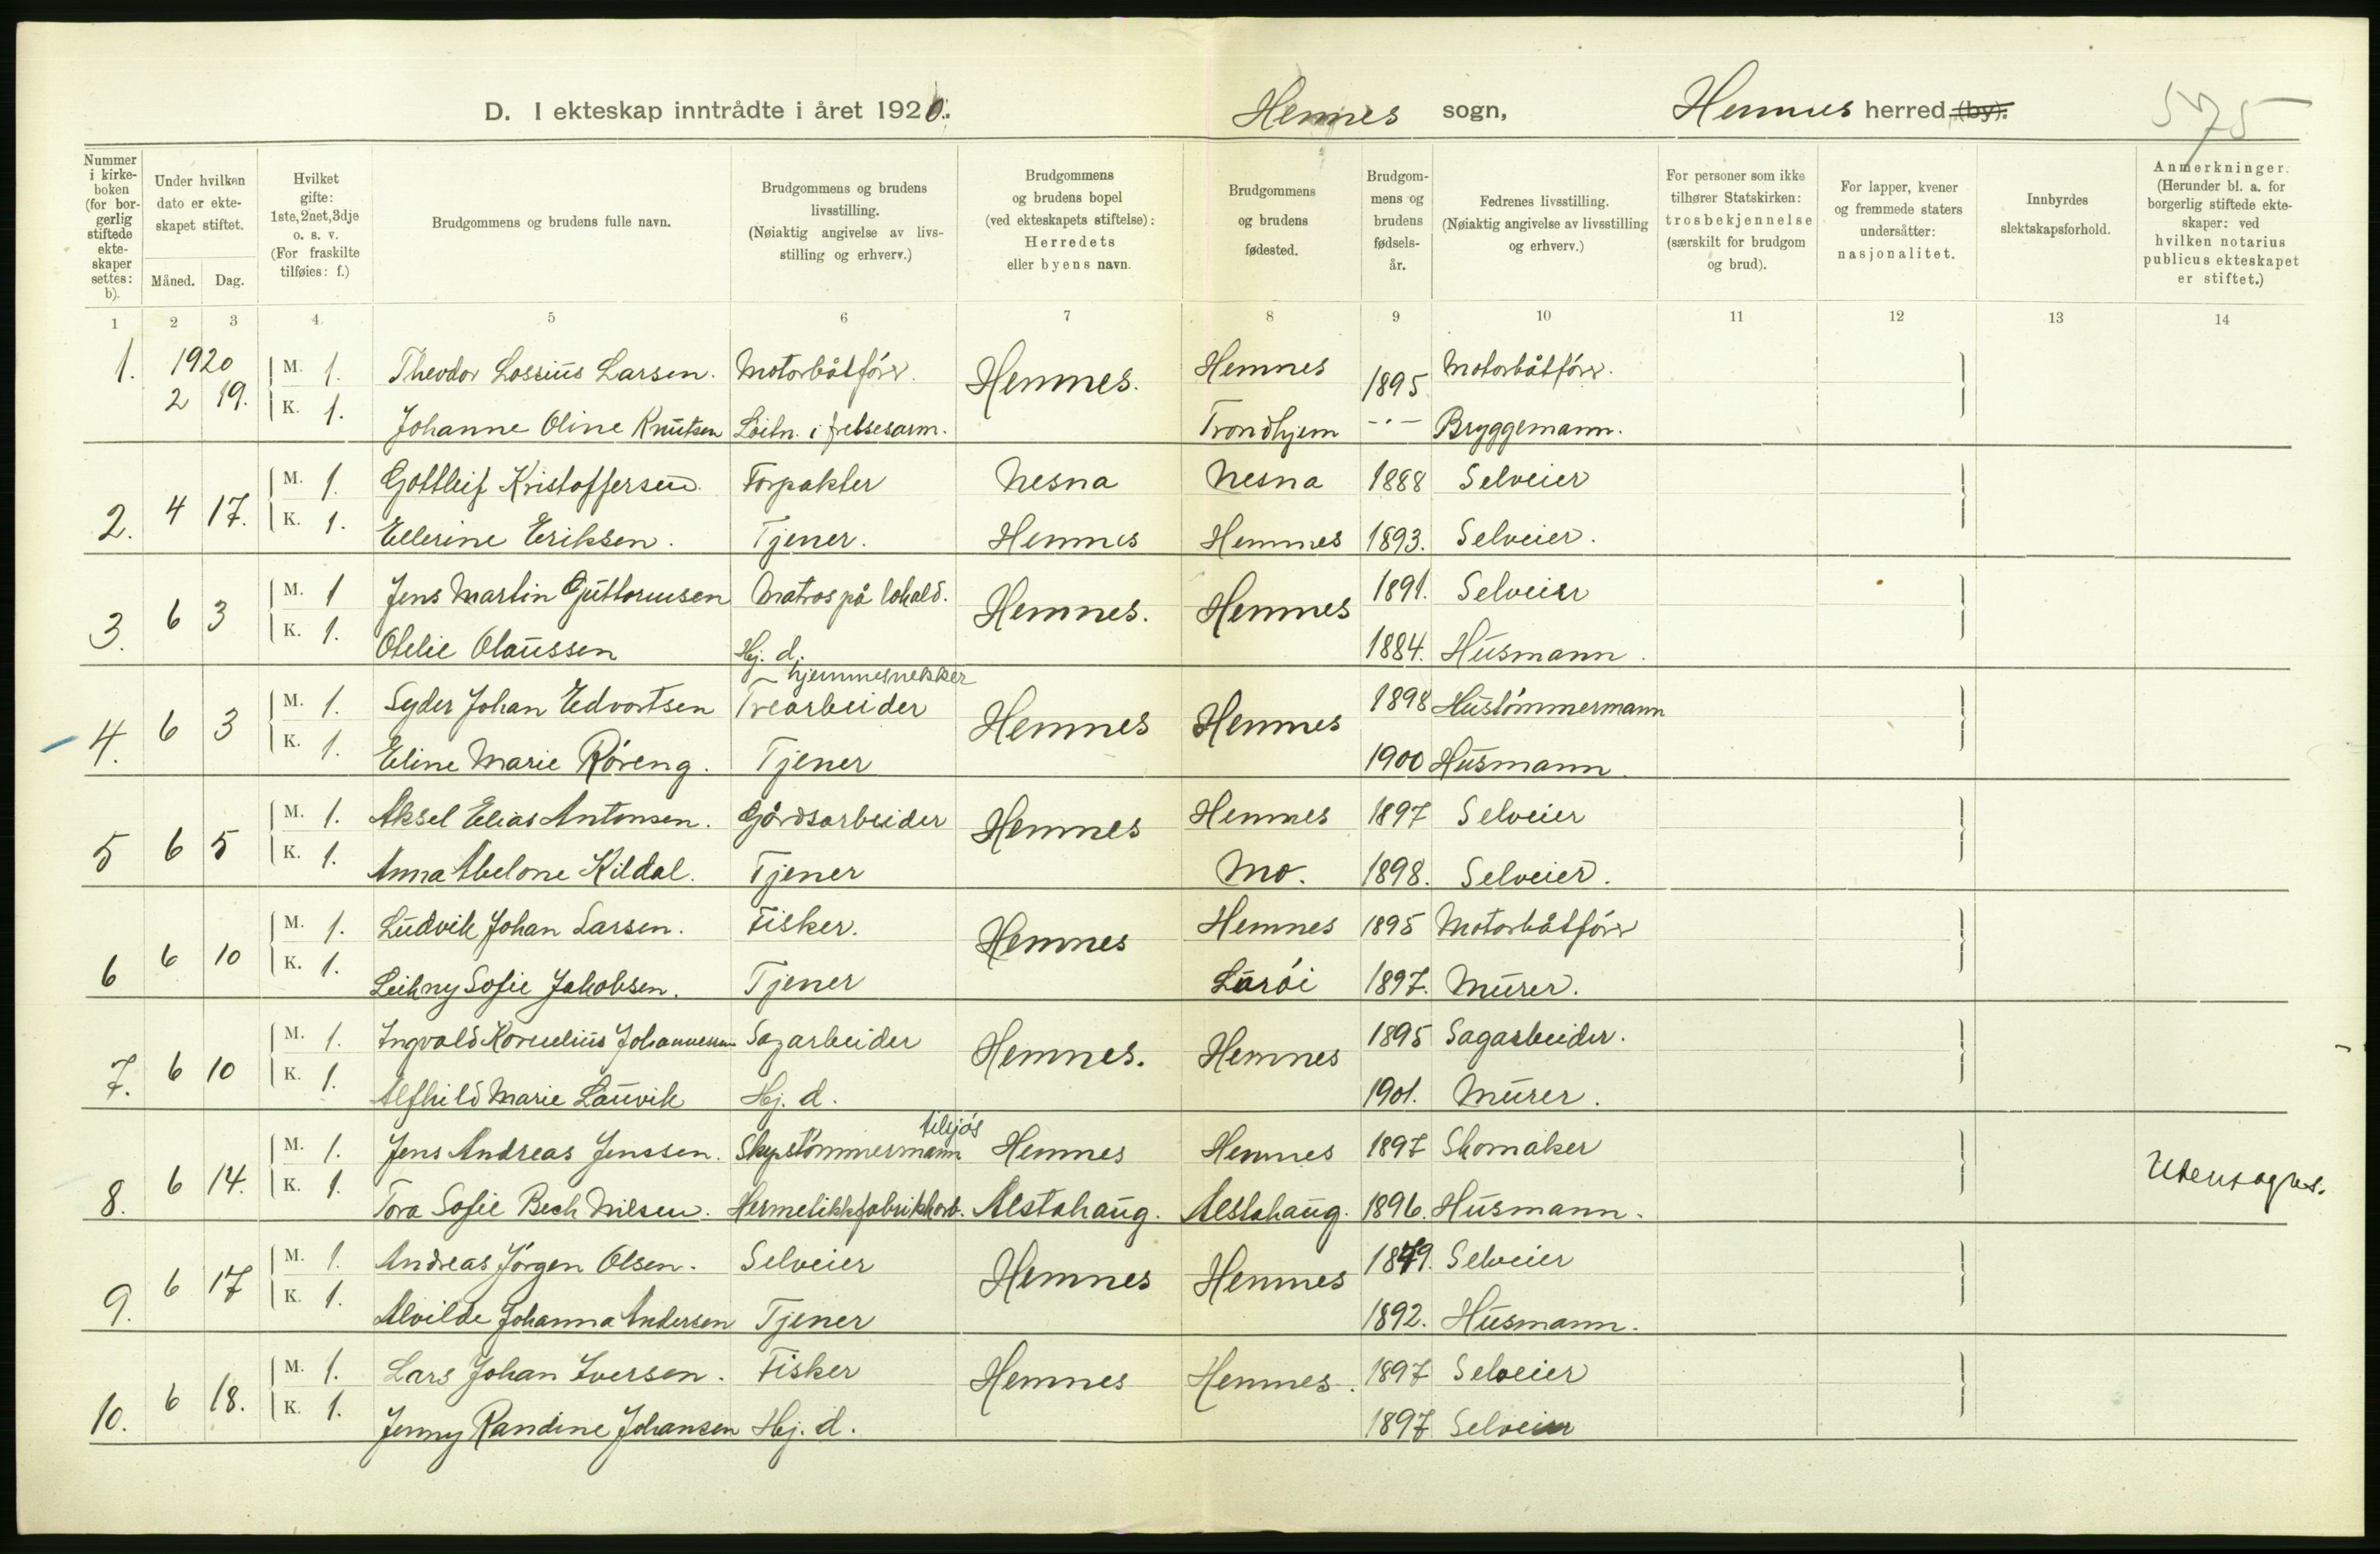 D. I ekteskap inntrådte i året 1920. Hemnes sogn, Hemnes herred (by). 575
Nummer i kirkeboken (for borgerlig stiftede ekteskaper settes: b).
Under hvilken dato er ekteskapet stiftet.
Måned. Dag.
Hvilket gifte: 1ste, 2net, 3dje o. s. v. (For fraskilte tilføies: f.)
Brudgommens og brudens fulle navn.
Brudgommens og brudens livsstilling. (Nøiaktig angivelse av livsstilling og erhverv.)
Brudgommens og brudens bopel (ved ekteskapets stiftelse): Herredets eller byens navn.
Brudgommens og brudens fødested.
Brudgommens og brudens fødselsår.
Fedrenes livsstilling. (Nøiaktig angivelse av livsstilling og erhverv.)
For personer som ikke tilhører Statskirken: trosbekjennelse (særskilt for brudgom og brud).
For lapper, kvener og fremmede staters undersåtter: nasjonalitet.
Innbyrdes slektskapsforhold.
Anmerkninger. (Herunder bl. a. for borgerlig stiftede ekteskaper: ved hvilken notarius publicus ekteskapet er stiftet.)
1 2 3 4. 5 6 7 8 9 10 11 12 13 14
1. 1920 M. 1. Theodor Lossius Larsen. Motorbåtfører. Hemnes. Hemnes 1895 Motorbåtfører.
2 19. K. 1. Johanne Oline Knutsen Løitn. i frelsesarm. Trondhjem -"- Bryggemann.
2. 4 17. M. 1. Gottleif Kristoffersen. Forpakter Nesna Nesna 1888 Selveier
K. 1. Ellerine Eriksen. Tjener. Hemnes Hemnes 1893. Selveier.
3. 6 3 M. 1 Jens Martin Guttormsen Matros på lokald. Hemnes. Hemnes 1891. Selveier
K. 1. Otelie Olaussen Hj. d. 1884. Husmann.
hjemmesnekker
4. 6 3 M. 1. Syder Johan Edvartsen Trearbeider Hemnes Hemnes 1898 Hustømmermann
K. 1. Eline Marie Røreng. Tjener 1900 Husmann.
5 6 5 M. 1. Aksel Elias Antonsen. Gårdsarbeider Hemnes Hemnes 1897 Selveier
K. 1. Anna Abelone Kildal. Tjener Mo. 1898. Selveier.
6 6 10 M. 1. Ludvik Johan Larsen. Fisker. Hemnes Hemnes 1895 Motorbåtfører
K. 1. Leikny Sofie Jakobsen. Tjener Lurøi 1897. Murer.
7. 6 10 M. 1. Ingvald Kornelius Johannessen Sagarbeider Hemnes. Hemnes 1895 Sagarbeider.
K. 1. Alfhild Marie Lauvik Hj. d. 1901. Murer.
tilsjøs
8. 6 14. M. 1. Jens Andreas Jenssen. Skipstømmermann Hemnes Hemnes 1897 Skomaker
K. 1. Tora Sofie Bech Nilsen. Hermetikkfabrikkarb. Alstahaug. Alstahaug. 1896. Husmann. Utensogns.
9. 6 17 M. 1. Andreas Jørgen Olsen. Selveier Hemnes Hemnes 1879. Selveier
K. 1. Alvilde Johanna Andersen Tjener 1892. Husmann.
10. 6 18. M. 1. Lars Johan Iversen. Fisker Hemnes Hemnes. 1897 Selveier
K. 1. Jenny Randine Johansen Hj. d. 1897 Selveier